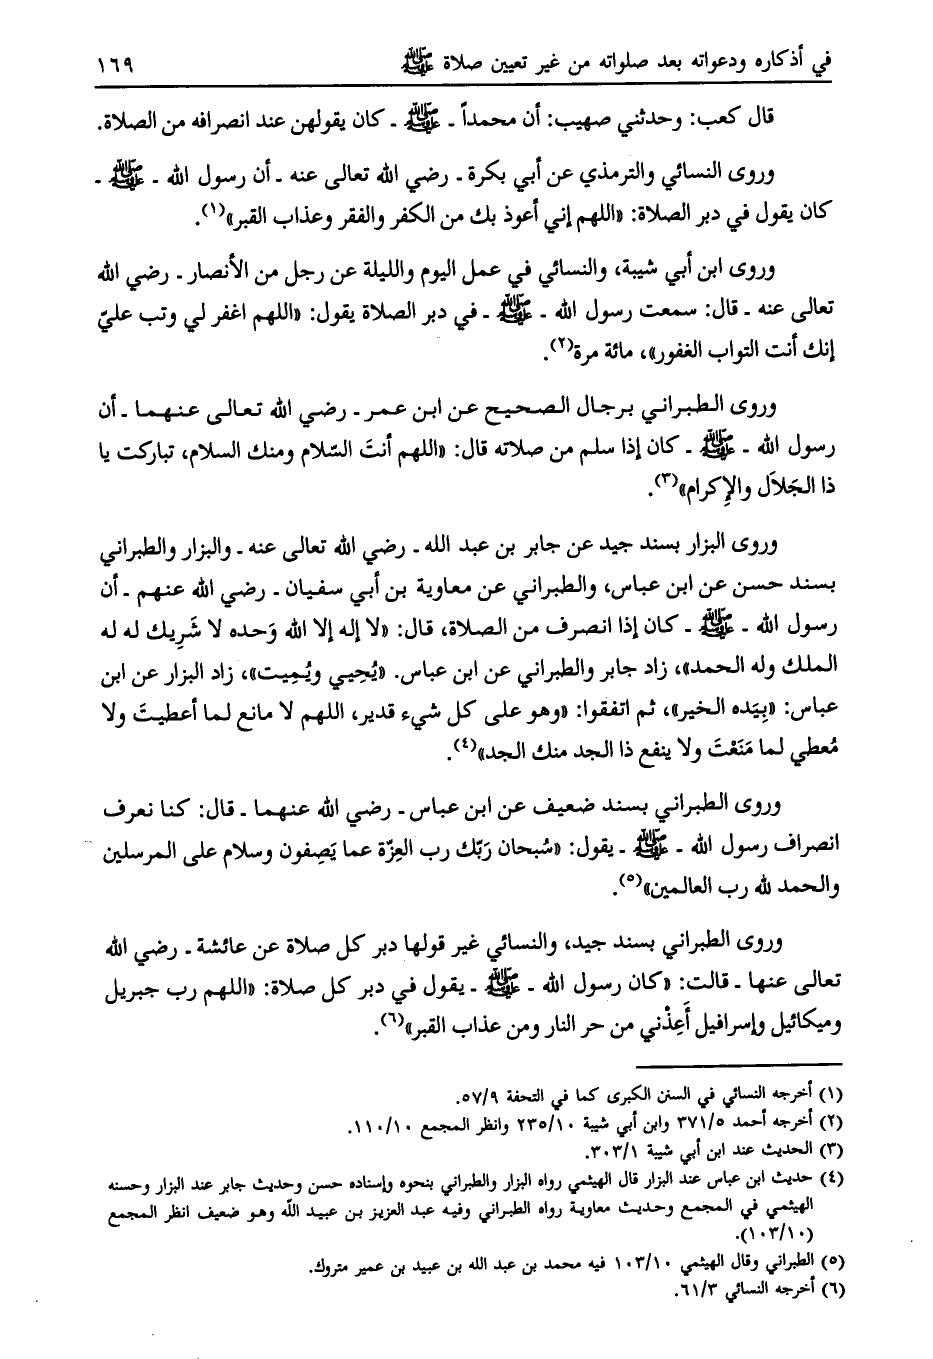 في أذكاره ودعواته بعد صلواته من غير تعيين صلاة ﷺ ١٦٩
قال كعب: وحدثني صهيب: أن محمداً ـ ﷺ ـ كان يقولهن عند انصرافه من الصلاة.
وروى النسائي والترمذي عن أبي بكرة ـ رضي الله تعالى عنه ـ أن رسول الله ـ ﷺ ـ
كان يقول في دبر الصلاة: «اللهم إني أعوذ بك من الكفر والفقر وعذاب القبر»(١).
وروى ابن أبي شيبة، والنسائي في عمل اليوم والليلة عن رجل من الأنصار ـ رضي الله
تعالى عنه ـ قال: سمعت رسول الله ـ ﷺ ـ في دبر الصلاة يقول: «اللهم اغفر لي وتب عليّ
إنك أنت التواب الغفور»، مائة مرة(٢).
وروى الطبراني برجال الصحيح عن ابن عمر ـ رضي الله تعالى عنهما ـ أن
رسول الله ـ ﷺ ـ كان إذا سلم من صلاته قال: «اللهم أنتَ السّلام ومنك السلام، تباركت يا
ذا الجَلاَل والإِكرام»(٣).
وروى البزار بسند جيد عن جابر بن عبد الله ـ رضي الله تعالى عنه ـ والبزار والطبراني
بسند حسن عن ابن عباس، والطبراني عن معاوية بن أبي سفيان ـ رضي الله عنهم ـ أن
رسول الله ـ ﷺ ـ كان إذا انصرف من الصلاة، قال: «لا إله إلا الله وَحده لا شَرِيك له له
الملك وله الحمد»، زاد جابر والطبراني عن ابن عباس. «يُحيي ويُمِيت»، زاد البزار عن ابن
عباس: «بِيَده الخير»، ثم اتفقوا: «وهو على كل شيء قدير، اللهم لا مانع لما أعطيتَ ولا
مُعطي لما مَنَعْتَ ولا ينفع ذا الجد منك الجد»(٤).
وروى الطبراني بسند ضعيف عن ابن عباس ـ رضي الله عنهما ـ قال: كنا نعرف
انصراف رسول الله ـ ﷺ ـ يقول: «سُبحان رَبّك رب العِزّة عما يَصِفون وسلام على المرسلين
والحمد لله رب العالمين»(٥).
وروى الطبراني بسند جيد، والنسائي غير قولها دبر كل صلاة عن عائشة ـ رضي الله
تعالى عنها ـ قالت: «كان رسول الله ـ ﷺ ـ يقول في دبر كل صلاة: «اللهم رب جبريل
وميكائيل وإسرافيل أَعِذْني من حر النار ومن عذاب القبر»(٦).
(١) أخرجه النسائي في السنن الكبرى كما في التحفة ٥٧/٩.
(٢) أخرجه أحمد ٣٧١/٥ وابن أبي شيبة ٢٣٥/١٠ وانظر المجمع ١١٠/١٠.
(٣) الحديث عند ابن أبي شيبة ٣٠٣/١.
(٤) حديث ابن عباس عند البزار قال الهيثمي رواه البزار والطبراني بنحوه وإسناده حسن وحديث جابر عند البزار وحسنه
الهيثمي في المجمع وحديث معاوية رواه الطبراني وفيه عبد العزيز بن عبيد الله وهو ضعيف انظر المجمع
(١٠٣/١٠).
(٥) الطبراني وقال الهيثمي ١٠٣/١٠ فيه محمد بن عبد الله بن عبيد بن عمير متروك.
(٦) أخرجه النسائي ٦١/٣.